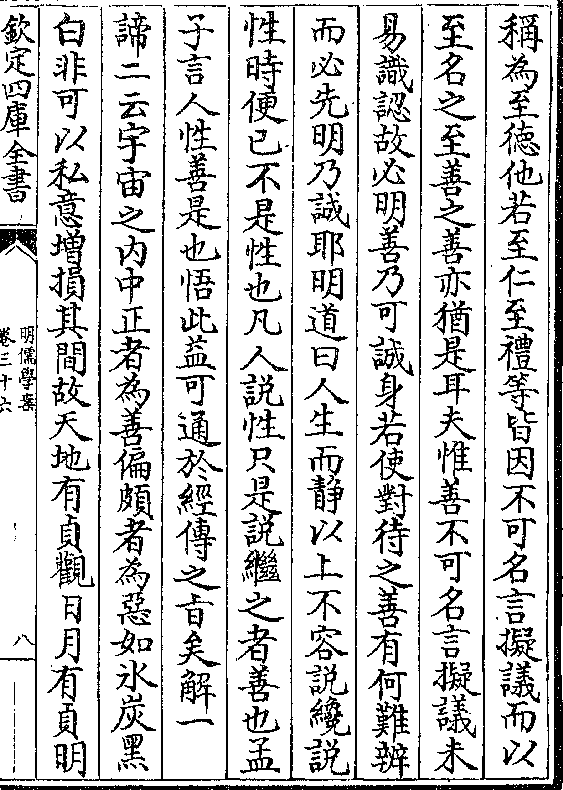 稱為至德他若至仁至禮等皆因不可名言擬議而以
至名之至善之善亦猶是耳夫惟善不可名言擬議未
易識認故必明善乃可誠身若使對待之善有何難辨
而必先明乃誠耶明道曰人生而静以上不容説纔説
性時便已不是性也凡人説性只是説繼之者善也孟
子言人性善是也悟此益可通於經傳之旨矣解一
諦二云宇宙之内中正者為善偏頗者為惡如氷炭黑
白非可以私意増損其間故天地有貞觀日月有貞明
欽定四庫全書
明儒學案
卷三十六
八